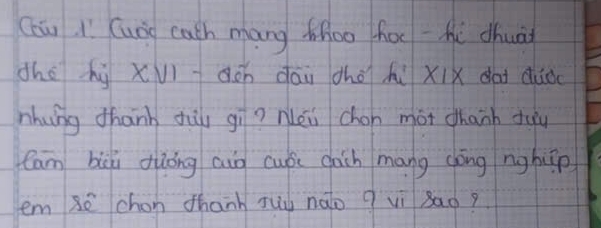 Câu 1: Cuộc cách mạng khoa học - kĩ thuật
thế kỷ XVI - đến đầu thế kỉ XIX đạt được
những thành tựu gì? Nếu chọn một thành tựu
làm biểu tượng của cuộc cách mạng công nghiệp,
em sẽ chọn thành tựu nào? vì sao?